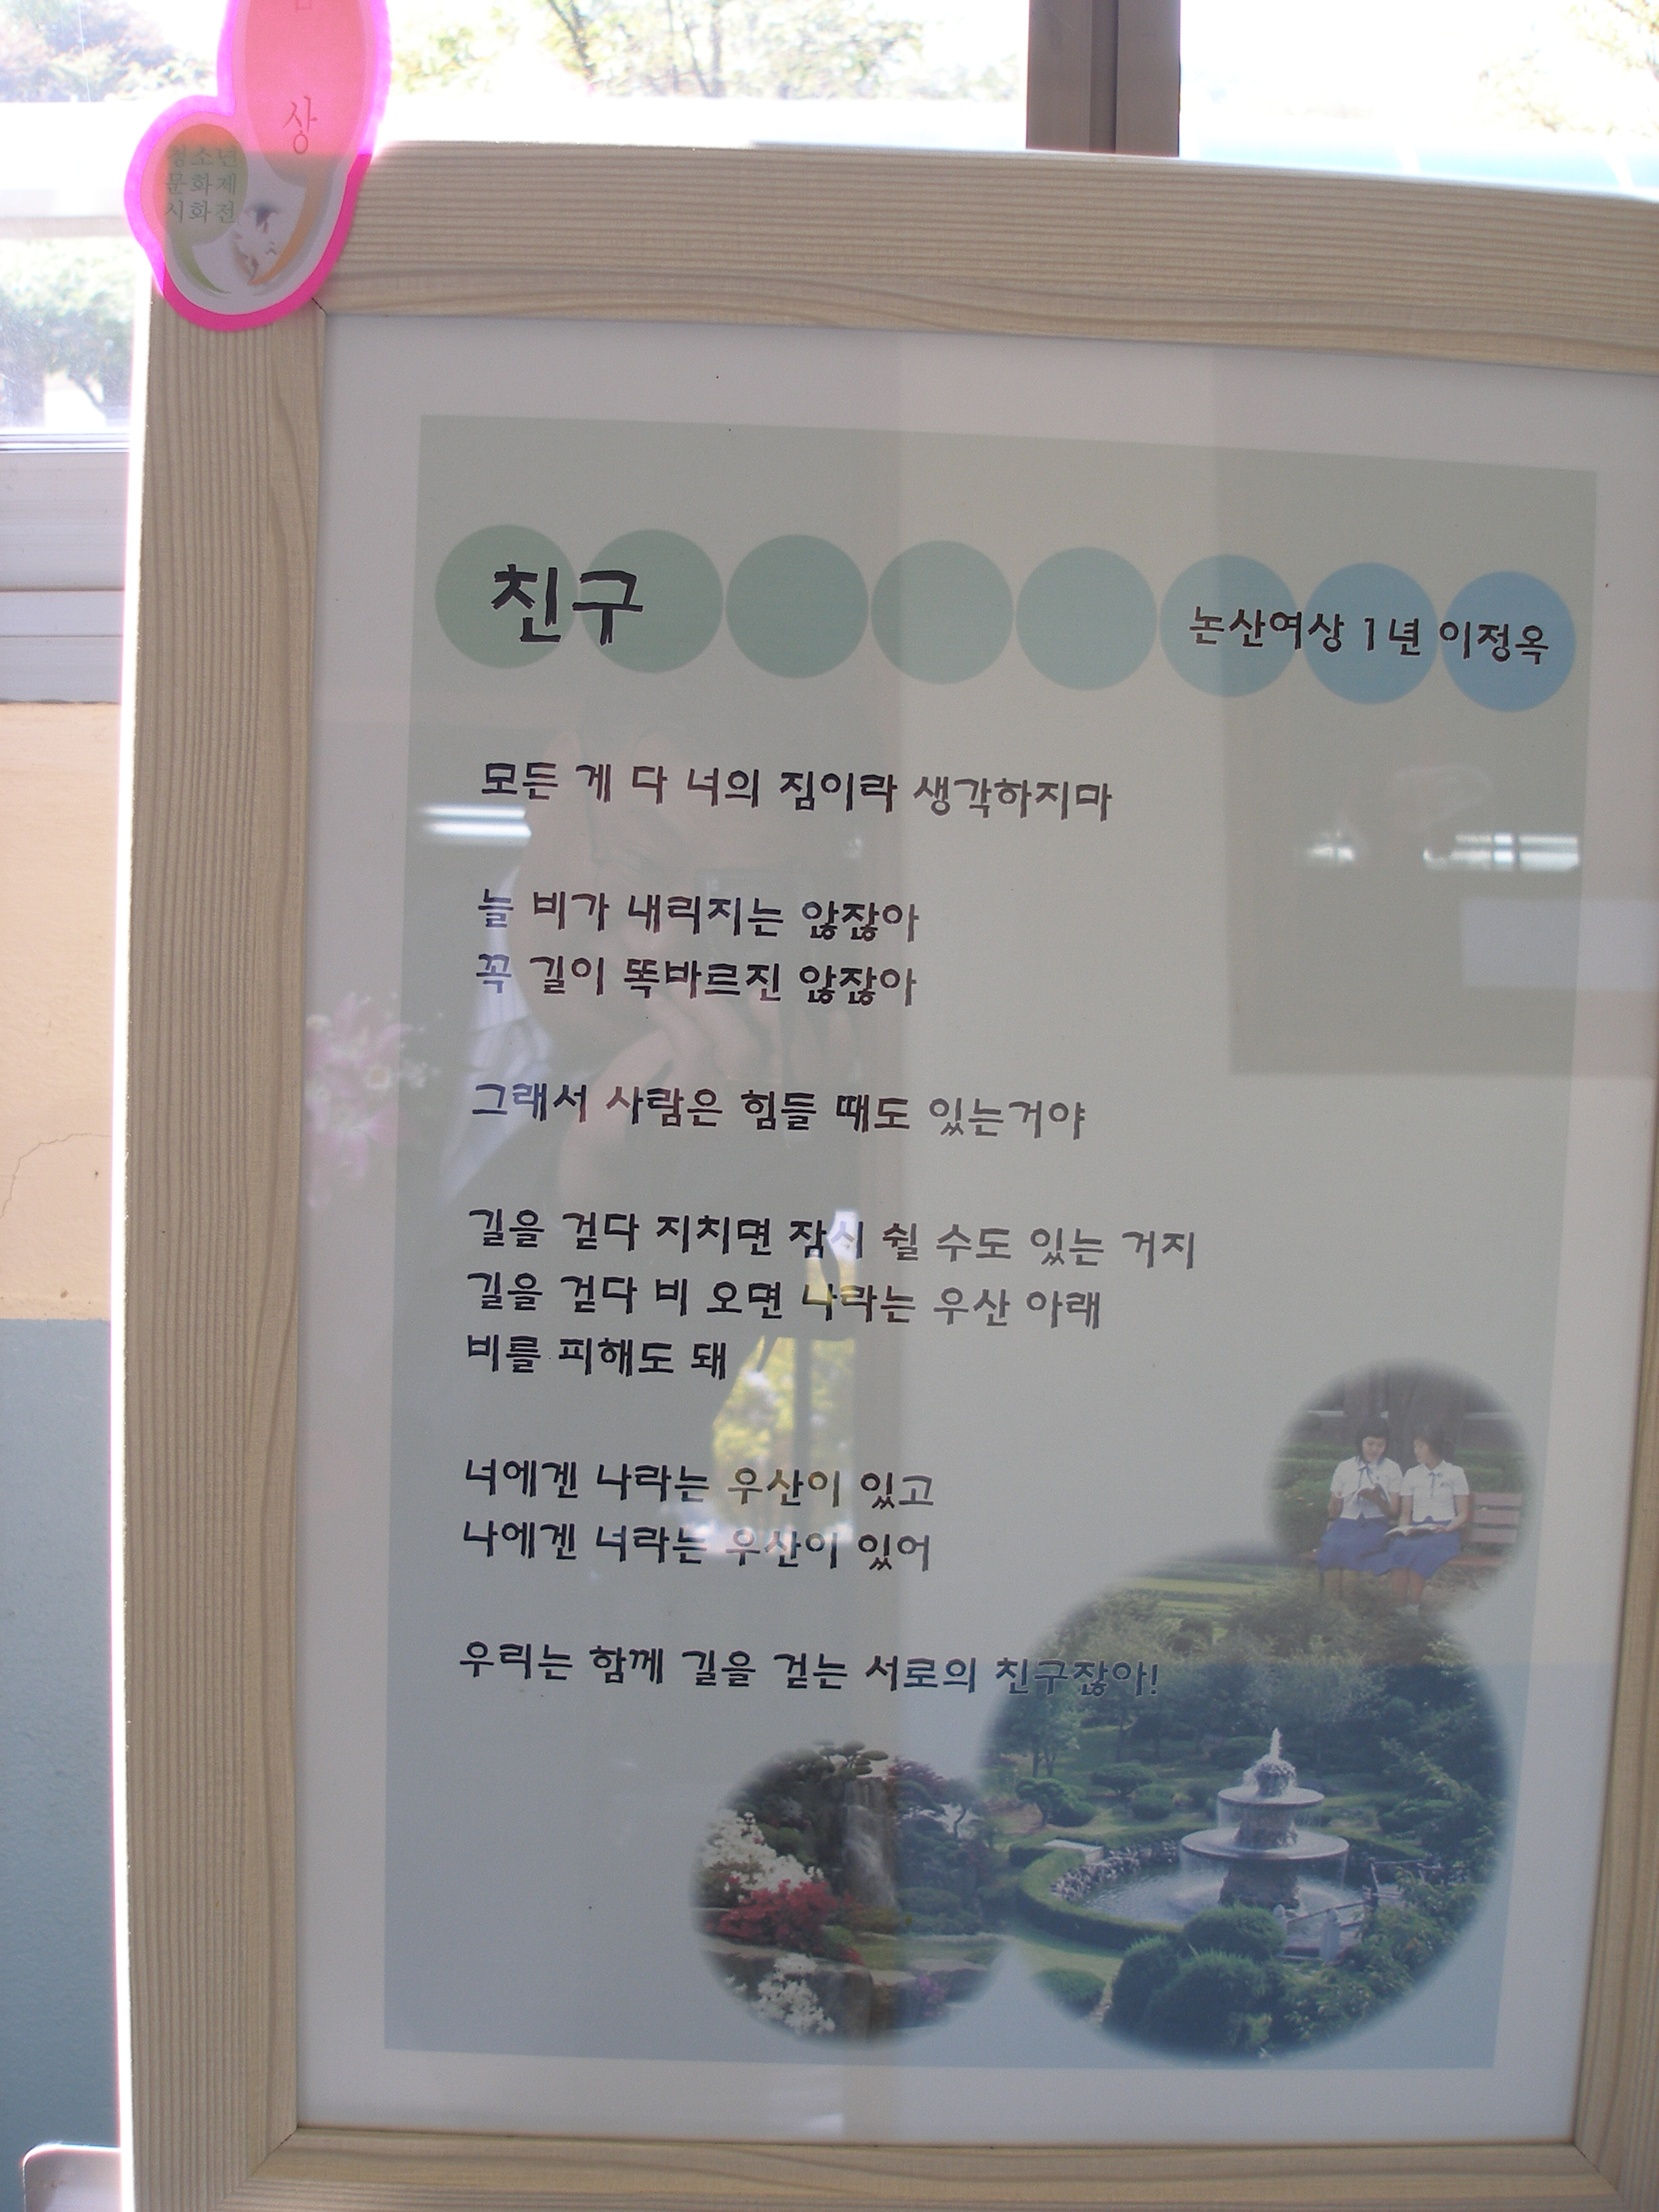 상
청소년
문화제
시화전
친구
논산여상 1년 이정옥
모든 게 다 너의 짐이라 생각하지마
늘 비가 내리지는 않잖아
꼭 길이 똑바르진 않잖아
그래서 사람은 힘들 때도 있는거야
길을 걷다 지치면 잠시 쉴 수도 있는 거지
길을 걷다 비 오면 나라는 우산 아래
비를 피해도 돼
너에겐 나라는 우산이 있고
나에겐 너라는 우산이 있어
우리는 함께 길을 걷는 서로의 친구잖아!